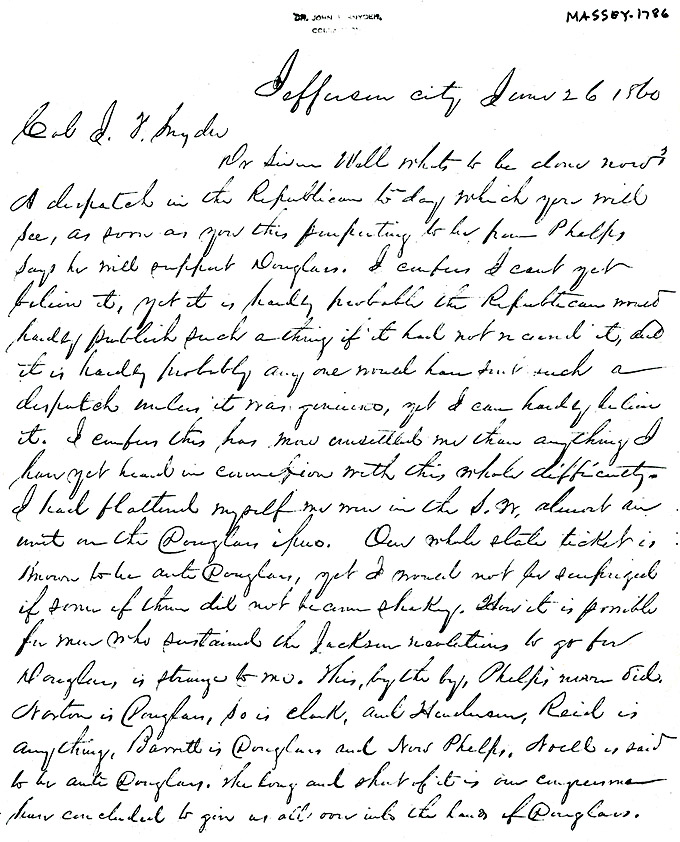 DR. JOHN F. SNYDER,
MASSEY-1786
Jefferson city, June 26 1860
Col J. F. Snyder
Dr Sir Well whats to be done now?
A despatch in the Republican to day which you will
see, as soon as you this purporting to be from Phelps
says he will support Douglass. I confess I cant yet
believe it, yet it is hardly probable the Republican would
hardly publish such a thing if it had not received it, and
it is hardly probably any one would have sent such a
despatch unless it was genuine, yet I can hardly believe
it. I confess this has more unsettled me than anything I
have yet heard in connexion with this whole difficulty.
I had flattered myself we were in the S.W. almost an
unit on the Douglass issue. Our whole state ticket is
known to be anti Douglass, yet I would not be surprized
if some of them did not become shaky. How it is possible
for men who sustained the Jackson resolutions to go for
Douglass is strange to me. This, by the by, Phelps never did.
Norton is Douglass, so is Clark, and Henderson, Reid is
anything, Barrett is Douglass and Now Phelps. Noell is said
to be anti Douglass. The long and short of it is our congressmen
have concluded to give us all over into the hands of Douglass.